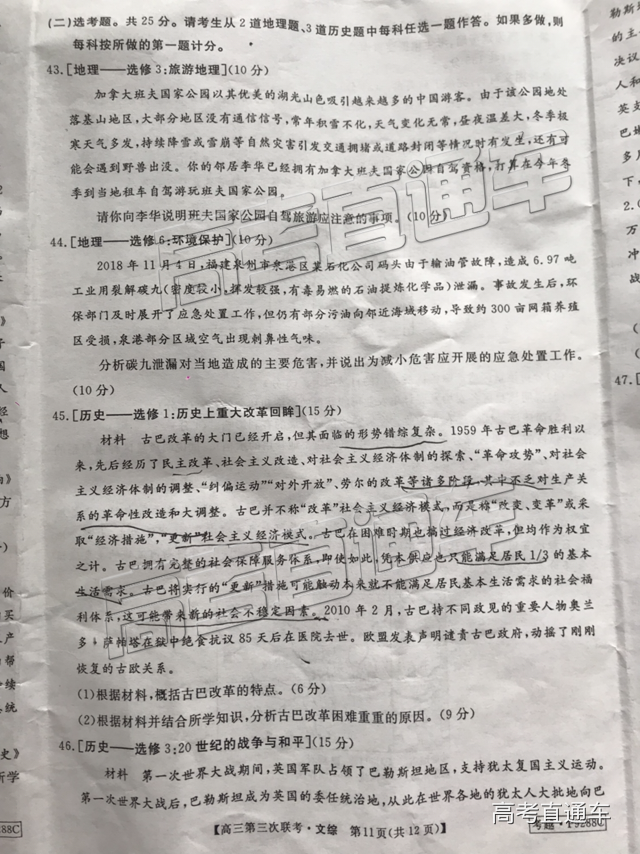 (二)选考题。共 25 分。请考生从 2 道地理题、3 道历史题中每科任选一题作答。如果多做,则
每科按所做的第一题计分。
43.[地理——选修 3:旅游地理](10 分)
加拿大班夫国家公园以其优美的湖光山色吸引越来越多的中国游客。由于该公园地处
落基山地区,大部分地区没有通信信号,常年积雪不化,天气变化无常,昼夜温差大,冬季极
寒天气多发,持续降雪或雪崩等自然灾害引发交通拥堵或道路封闭等情况时有发生,还有可
能会遇到野兽出没。你的邻居李华已经拥有加拿大班夫国家公园自驾资格,打算在今年冬
季到当地租车自驾游玩班夫国家公园。
请你向李华说明班夫国家公园自驾旅游应注意的事项。(10 分)
44.[地理——选修 6:环境保护](10 分)
2018 年 11 月 4 日,福建泉州市泉港区某石化公司码头由于输油管故障,造成 6.97 吨
工业用裂解碳九(密度较小、挥发较强,有毒易燃的石油提炼化学品)泄漏。事故发生后,环
保部门及时展开了应急处置工作,但仍有部分污油向邻近海域移动,导致约 300 亩网箱养殖
区受损,泉港部分区域空气出现刺鼻性气味。
分析碳九泄漏对当地造成的主要危害,并说出为减小危害应开展的应急处置工作。
(10 分)
45.[历史——选修 1:历史上重大改革回眸](15 分)
材料 古巴改革的大门已经开启,但其面临的形势错综复杂。1959 年古巴革命胜利以
来,先后经历了民主改革、社会主义改造、对社会主义经济体制的探索、“革命攻势”、对社会
主义经济体制的调整、“纠偏运动”“对外开放”、劳尔的改革等诸多阶段,其中不乏对生产关
系的革命性改造和大调整。古巴并不称“改革”社会主义经济模式,而是称“改变、变革”或采
取“经济措施”,“更新”社会主义经济模式。古巴在困难时期也搞过经济改革,但均作为权宜
之计。古巴拥有完整的社会保障服务体系,即使如此,凭本供应也只能满足居民 1/3 的基本
生活需求。古巴将实行的“更新”措施可能触动本来就不能满足居民基本生活需求的社会福
利体系,这可能带来新的社会不稳定因素。2010 年 2 月,古巴持不同政见的重要人物奥兰
多·萨帕塔在狱中绝食抗议 85 天后在医院去世。欧盟发表声明谴责古巴政府,动摇了刚刚
恢复的古欧关系。
(1)根据材料,概括古巴改革的特点。(6 分)
(2)根据材料并结合所学知识,分析古巴改革困难重重的原因。(9 分)
46.[历史——选修 3:20 世纪的战争与和平](15 分)
材料 第一次世界大战期间,英国军队占领了巴勒斯坦地区,支持犹太复国主义运动。
第一次世界大战后,巴勒斯坦成为英国的委任统治地,从此在世界各地的犹太人大批地向巴
【高三第三次联考·文综 第11页(共12页)】
高考直通车
288C
47.